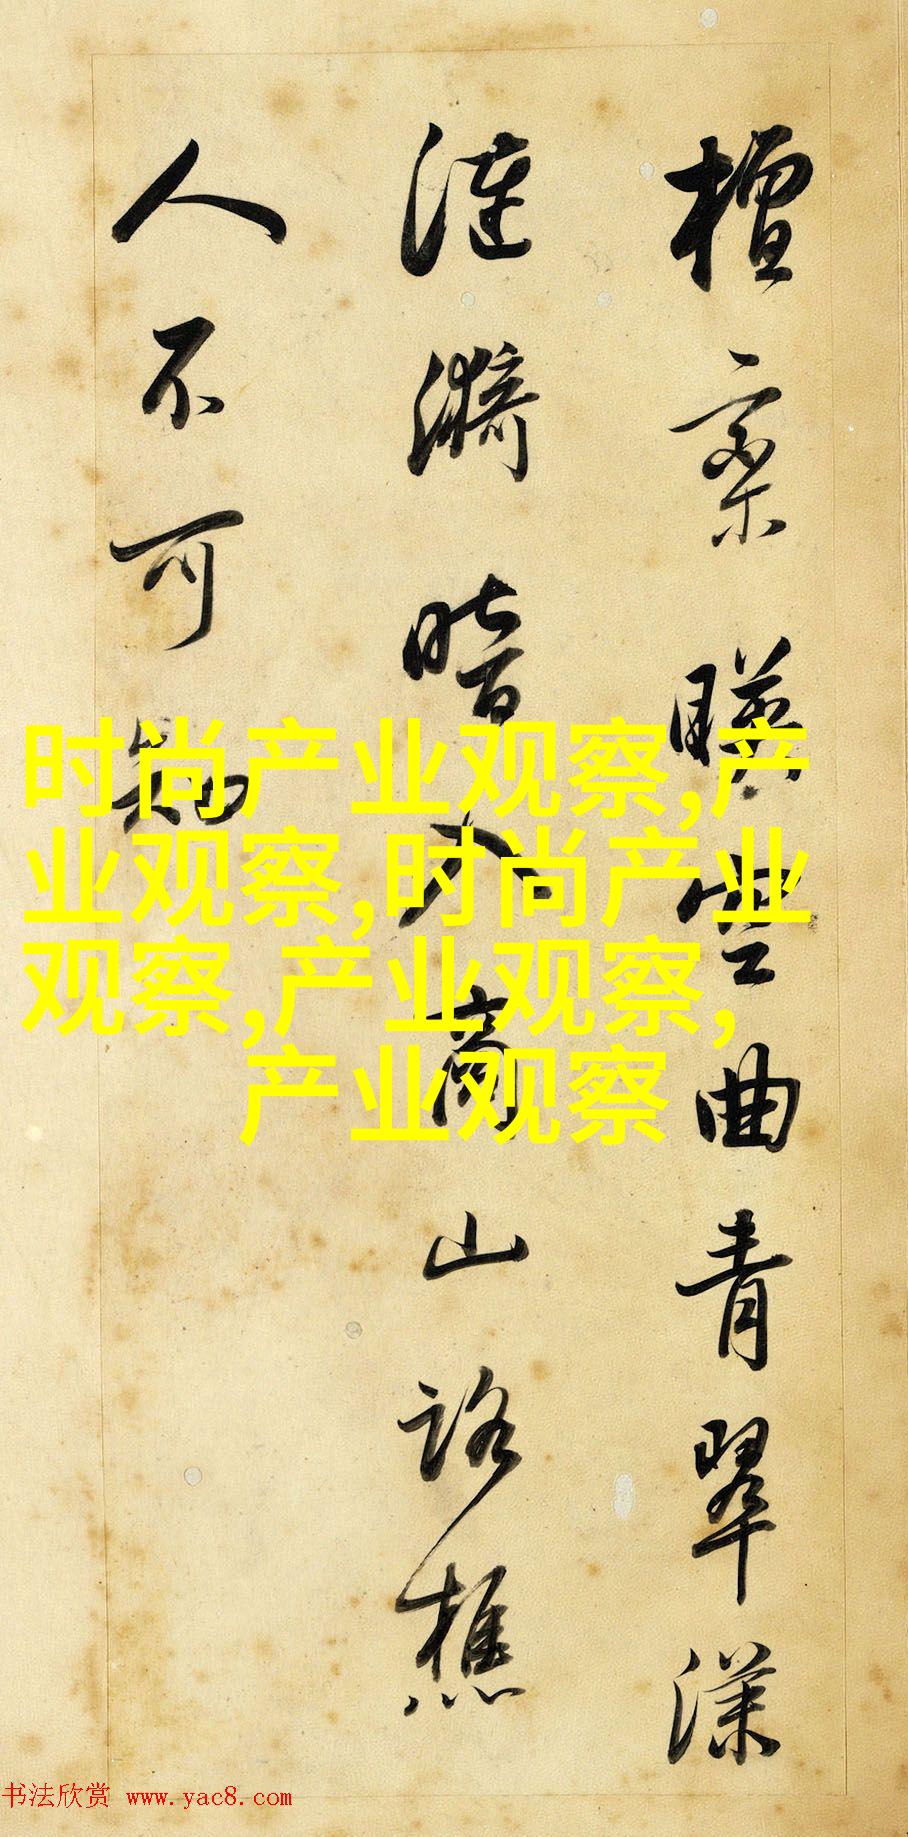 檀欒暎空曲青翠漾
漣漪暗入商山路樵
人不可知
时尚产业观察,产
业观察,时尚产业
观察,产业观察,
产业观察
书法欣赏 www.yac8.com